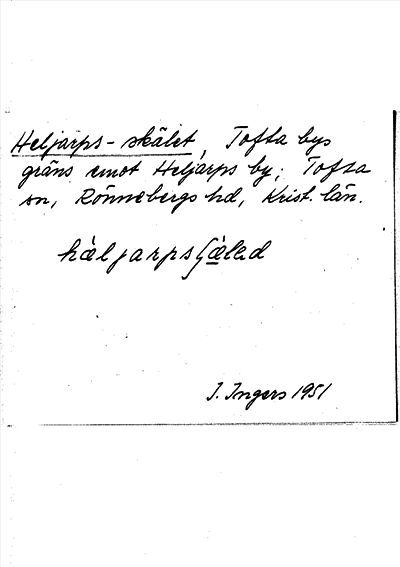 Heljarps-skälet, Tofta bys
gräns emot Heljarps by; Tofta
sn, Rönnebergs hd, Krist. län.
hæljarpsʃælad
I. Ingers 1951